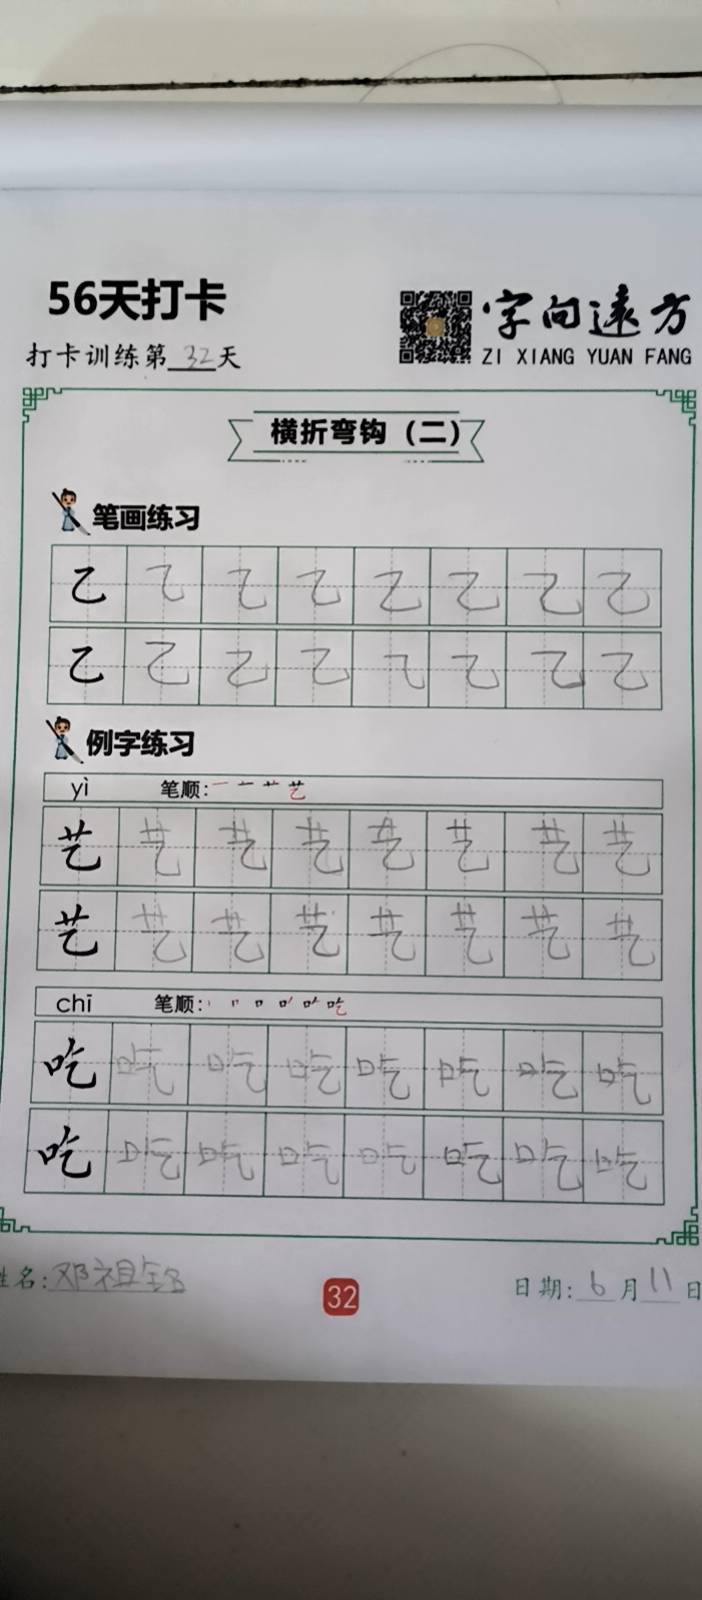 56天打卡
字向远方
打卡训练第32天
ZI XIANG YUAN FANG
横折弯钩（二）
笔画练习
乙乙乙乙乙乙乙乙
乙乙乙乙乙乙乙乙
例字练习
yì 笔顺：一 艹 艺
艺艺艺艺艺艺艺艺
艺艺艺艺艺艺艺艺
chī 笔顺：丨 口 吃
吃吃吃吃吃吃吃吃
吃吃吃吃吃吃吃吃
姓名：邓祖铭
32
日期：6月11日